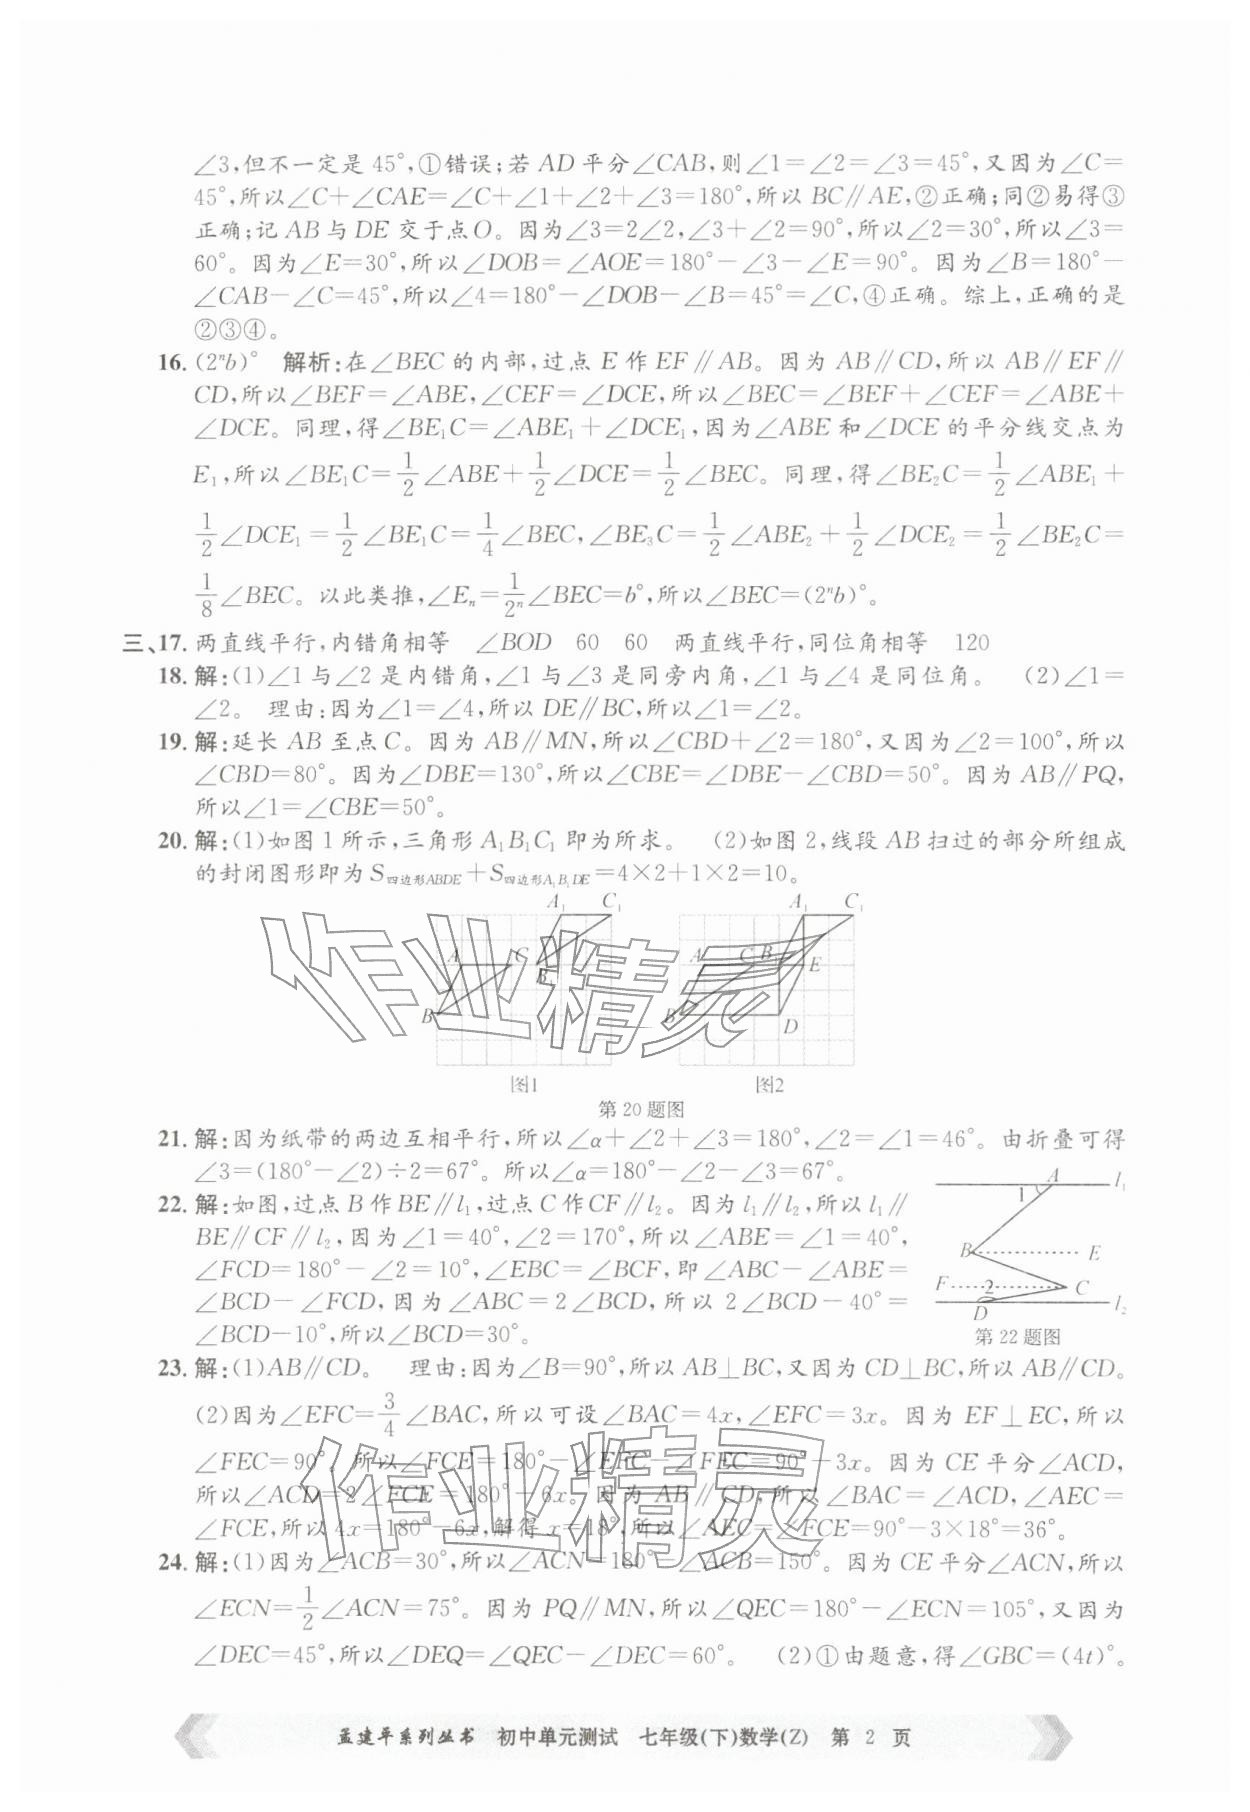 ∠3,但不一定是45°,①错误;若AD平分∠CAB,则∠1=∠2=∠3=45°,又因为∠C=
45°,所以∠C+∠CAE=∠C+∠1+∠2+∠3=180°,所以BC∥AE,②正确;同②易得③
正确;记AB与DE交于点O。因为∠3=2∠2,∠3+∠2=90°,所以∠2=30°,所以∠3=
60°。因为∠E=30°,所以∠DOB=∠AOE=180°-∠3-∠E=90°。因为∠B=180°-
∠CAB-∠C=45°,所以∠4=180°-∠DOB-∠B=45°=∠C,④正确。综上,正确的是
②③④。
16. (2ⁿb)° 解析:在∠BEC的内部,过点E作EF∥AB。因为AB∥CD,所以AB∥EF∥
CD,所以∠BEF=∠ABE,∠CEF=∠DCE,所以∠BEC=∠BEF+∠CEF=∠ABE+
∠DCE。同理,得∠BE₁C=∠ABE₁+∠DCE₁,因为∠ABE和∠DCE的平分线交点为
E₁,所以∠BE₁C=1/2∠ABE+1/2∠DCE=1/2∠BEC。同理,得∠BE₂C=1/2∠ABE₁+
1/2∠DCE₁=1/2∠BE₁C=1/4∠BEC,∠BE₃C=1/2∠ABE₂+1/2∠DCE₂=1/2∠BE₂C=
1/8∠BEC。以此类推,∠Eₙ=1/2ⁿ∠BEC=b°,所以∠BEC=(2ⁿb)°。
三、17. 两直线平行,内错角相等 ∠BOD 60 60 两直线平行,同位角相等 120
18. 解:(1)∠1与∠2是内错角,∠1与∠3是同旁内角,∠1与∠4是同位角。 (2)∠1=
∠2。 理由:因为∠1=∠4,所以DE∥BC,所以∠1=∠2。
19. 解:延长AB至点C。因为AB∥MN,所以∠CBD+∠2=180°,又因为∠2=100°,所以
∠CBD=80°。因为∠DBE=130°,所以∠CBE=∠DBE-∠CBD=50°。因为AB∥PQ,
所以∠1=∠CBE=50°。
20. 解:(1)如图1所示,三角形A₁B₁C₁即为所求。 (2)如图2,线段AB扫过的部分所组成
的封闭图形即为S四边形ABDE+S四边形A₁B₁DE=4×2+1×2=10。
A₁ C₁ A₁ C₁
A C B₁ A C B₁ E
B B D
图1 图2
第20题图
21. 解:因为纸带的两边互相平行,所以∠α+∠2+∠3=180°,∠2=∠1=46°。由折叠可得
∠3=(180°-∠2)÷2=67°。所以∠α=180°-∠2-∠3=67°。
22. 解:如图,过点B作BE∥l₁,过点C作CF∥l₂。因为l₁∥l₂,所以l₁∥
BE∥CF∥l₂,因为∠1=40°,∠2=170°,所以∠ABE=∠1=40°,
∠FCD=180°-∠2=10°,∠EBC=∠BCF,即∠ABC-∠ABE=
∠BCD-∠FCD,因为∠ABC=2∠BCD,所以2∠BCD-40°=
∠BCD-10°,所以∠BCD=30°。
A l₁
1
B E
F 2 C
D l₂
第22题图
23. 解:(1)AB∥CD。 理由:因为∠B=90°,所以AB⊥BC,又因为CD⊥BC,所以AB∥CD。
(2)因为∠EFC=3/4∠BAC,所以可设∠BAC=4x,∠EFC=3x。因为EF⊥EC,所以
∠FEC=90°,所以∠FCE=180°-∠EFC-∠FEC=90°-3x。因为CE平分∠ACD,
所以∠ACD=2∠FCE=180°-6x。因为AB∥CD,所以∠BAC=∠ACD,∠AEC=
∠FCE,所以4x=180°-6x,解得x=18°,所以∠AEC=∠FCE=90°-3×18°=36°。
24. 解:(1)因为∠ACB=30°,所以∠ACN=180°-∠ACB=150°。因为CE平分∠ACN,所以
∠ECN=1/2∠ACN=75°。因为PQ∥MN,所以∠QEC=180°-∠ECN=105°,又因为
∠DEC=45°,所以∠DEQ=∠QEC-∠DEC=60°。 (2)①由题意,得∠GBC=(4t)°。
孟建平系列丛书 初中单元测试 七年级(下)数学(Z) 第2页
作业精灵
作业精灵